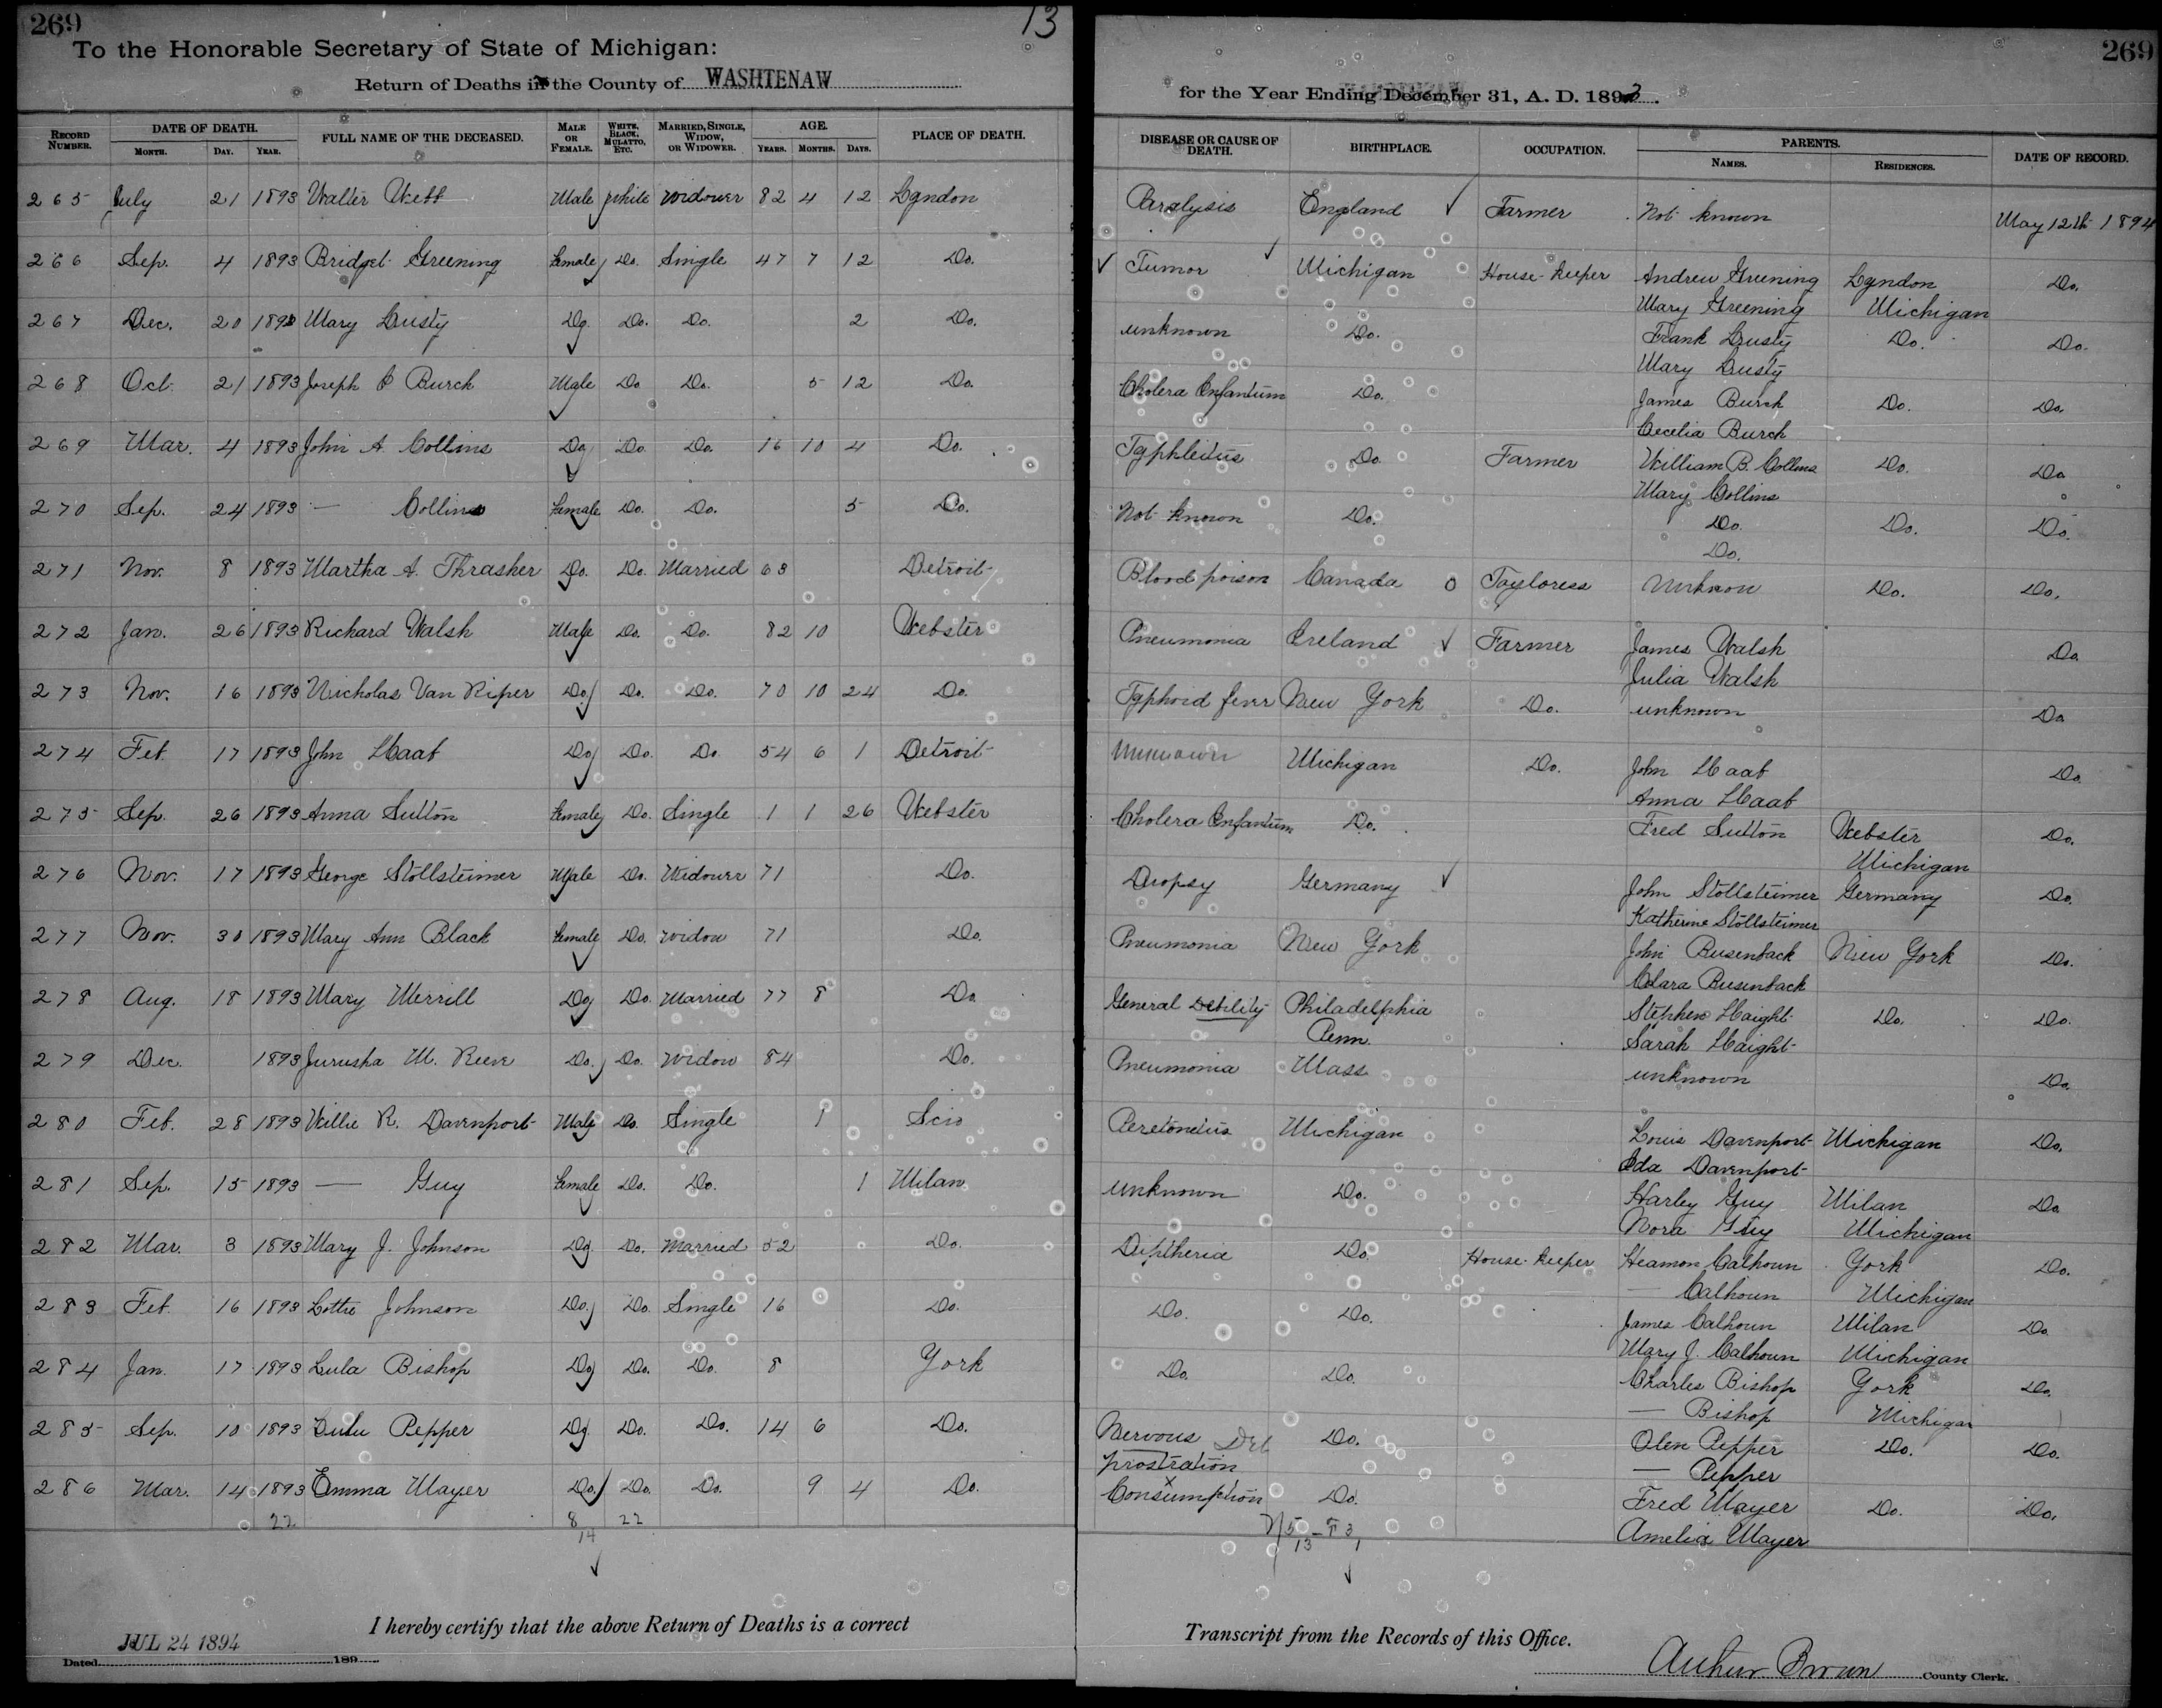 269 13 269
To the Honorable Secretary of State of Michigan:
Return of Deaths in the County of WASHTENAW for the Year Ending December 31, A. D. 1893.
RECORD NUMBER. DATE OF DEATH. MONTH. DAY. YEAR. FULL NAME OF THE DECEASED. MALE OR FEMALE. WHITE, BLACK, MULATTO, ETC. MARRIED, SINGLE, WIDOW, OR WIDOWER. AGE. YEARS. MONTHS. DAYS. PLACE OF DEATH. DISEASE OR CAUSE OF DEATH. BIRTHPLACE. OCCUPATION. PARENTS. NAMES. RESIDENCES. DATE OF RECORD.
265 July 21 1893 Walter Webb Male White Widower 82 4 12 Lyndon Paralysis England Farmer Not known May 12th 1894
266 Sep. 4 1893 Bridget Greening Female Do. Single 47 7 12 Do. Tumor Michigan House-keeper Andrew Greening Lyndon Do.
Mary Greening Michigan
267 Dec. 20 1893 Mary Lusty Do. Do. Do. 2 Do. unknown Do. Frank Lusty Do. Do.
Mary Lusty
268 Oct. 21 1893 Joseph C Burch Male Do Do. 5 12 Do. Cholera Infantum Do. James Burch Do. Do.
Cecelia Burch
269 Mar. 4 1893 John A Collins Do Do Do. 16 10 4 Do. Typhleitus Do Farmer William B. Collins Do. Do
Mary Collins
270 Sep. 24 1893 — Collins Female Do. Do. 5 Do. Not known Do. Do. Do. Do.
Do.
271 Nov. 8 1893 Martha A. Thrasher Do. Do. Married 63 Detroit Blood poison Canada Tayloress Unknown Do. Do.
272 Jan. 26 1893 Richard Walsh Male Do. Do. 82 10 Webster Pneumonia Ireland Farmer James Walsh Do
Julia Walsh
273 Nov. 16 1893 Nicholas Van Riper Do. Do. Do. 70 10 24 Do. Typhoid fever New York Do. unknown Do
274 Feb. 17 1893 John Haab Do Do. Do 54 6 1 Detroit Unknown Michigan Do. John Haab Do
Anna Haab
275 Sep. 26 1893 Anna Sutton Female Do. Single 1 1 26 Webster Cholera Infantum Do. Fred Sutton Webster Do.
Michigan
276 Nov. 17 1893 George Stollsteimer Male Do. Widower 71 Do. Dropsy Germany John Stollsteimer Germany Do.
Katherine Stollsteimer
277 Nov. 30 1893 Mary Ann Black Female Do. Widow 71 Do. Pneumonia New York John Busenback New York Do.
Clara Busenback
278 Aug. 18 1893 Mary Merrill Do Do. Married 77 8 Do. General Debility Philadelphia Stephen Haight Do. Do.
Penn. Sarah Haight
279 Dec. 1893 Jurusha M. Reeve Do. Do. Widow 84 Do. Pneumonia Mass unknown Do
280 Feb. 28 1893 Willie R. Davenport Male Do. Single 1 Scio Peretonitus Michigan Louis Davenport Michigan Do.
Ida Davenport
281 Sep. 15 1893 — Guy Female Do. Do. 1 Milan unknown Do. Harley Guy Milan Do
Nora Guy Michigan
282 Mar. 3 1893 Mary J. Johnson Do. Do. Married 52 Do. Diptheria Do. House-keeper Heamon Calhoun York Do.
— Calhoun Michigan
283 Feb. 16 1893 Lottie Johnson Do. Do. Single 16 Do. Do. Do. James Calhoun Milan Do
Mary J. Calhoun Michigan
284 Jan. 17 1893 Lula Bishop Do Do. Do. 8 York Do. Do. Charles Bishop York Do.
— Bishop Michigan
285 Sep. 10 1893 Lulu Pepper Do. Do. Do. 14 6 Do. Nervous Deb Do. Olen Pepper Do. Do.
prostration — Pepper
286 Mar. 14 1893 Emma Mayer Do. Do. Do. 9 4 Do. Consumption Do. Fred Mayer Do. Do.
22 8 22 Amelia Mayer
14 13 1
I hereby certify that the above Return of Deaths is a correct Transcript from the Records of this Office.
JUL 24 1894
Dated 189 Arthur Brown County Clerk.